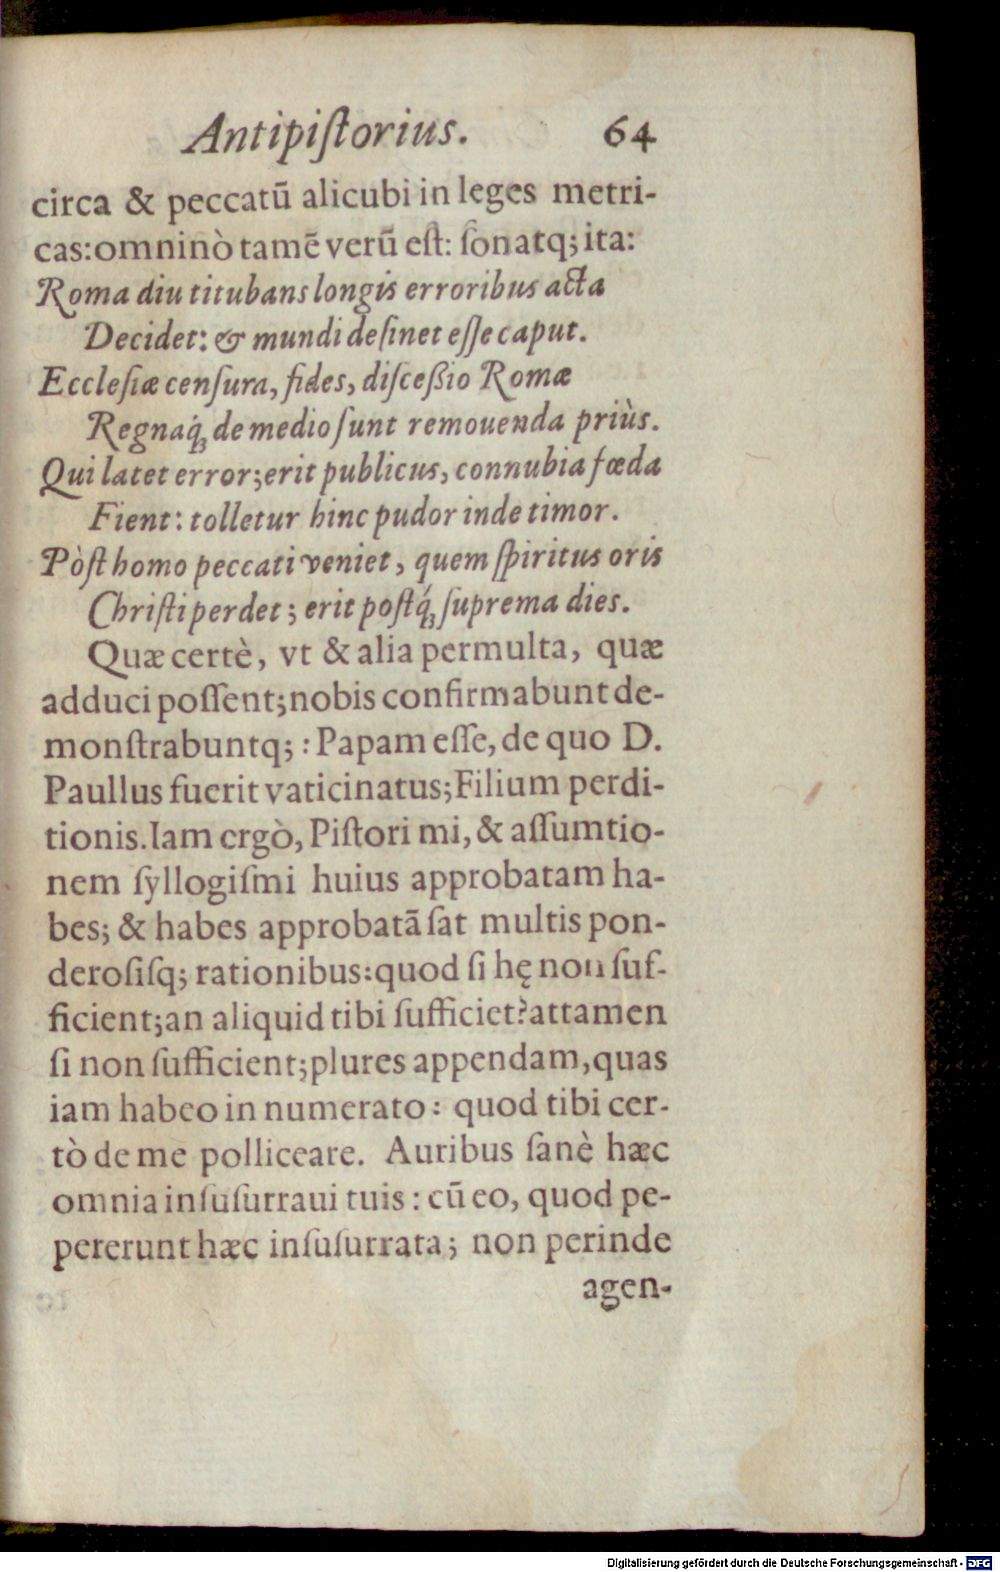 Antipiſtorius. 64
circa & peccatū alicubi in leges metri-
cas: omninò tamē verū eſt: ſonatq; ita:
Roma diu titubans longis erroribus acta
Decidet: & mundi deſinet eſſe caput.
Eccleſiæ cenſura, fides, diſceßio Romæ
Regnaq́; de medio ſunt remouenda priùs.
Qui latet error; erit publicus, connubia fœda
Fient: tolletur hinc pudor inde timor.
Pòſt homo peccati veniet, quem ſpiritus oris
Chriſti perdet; erit poſtq́; ſuprema dies.
Quæ certè, vt & alia permulta, quæ
adduci poſſent; nobis confirmabunt de-
monſtrabuntq; : Papam eſſe, de quo D.
Paullus fuerit vaticinatus; Filium perdi-
tionis. Iam ergò, Piſtori mi, & aſſumtio-
nem ſyllogiſmi huius approbatam ha-
bes; & habes approbatā ſat multis pon-
deroſiſq; rationibus: quod ſi hę non ſuf-
ficient; an aliquid tibi ſufficiet? attamen
ſi non ſufficient; plures appendam, quas
iam habeo in numerato: quod tibi cer-
tò de me polliceare. Auribus ſanè hæc
omnia inſuſurraui tuis: cū eo, quod pe-
pererunt hæc inſuſurrata; non perinde
agen-
Digitalisierung gefördert durch die Deutsche Forschungsgemeinschaft - DFG